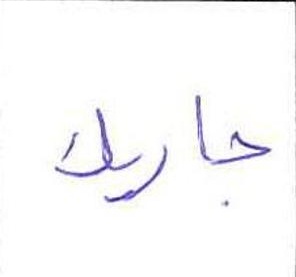 جاريك